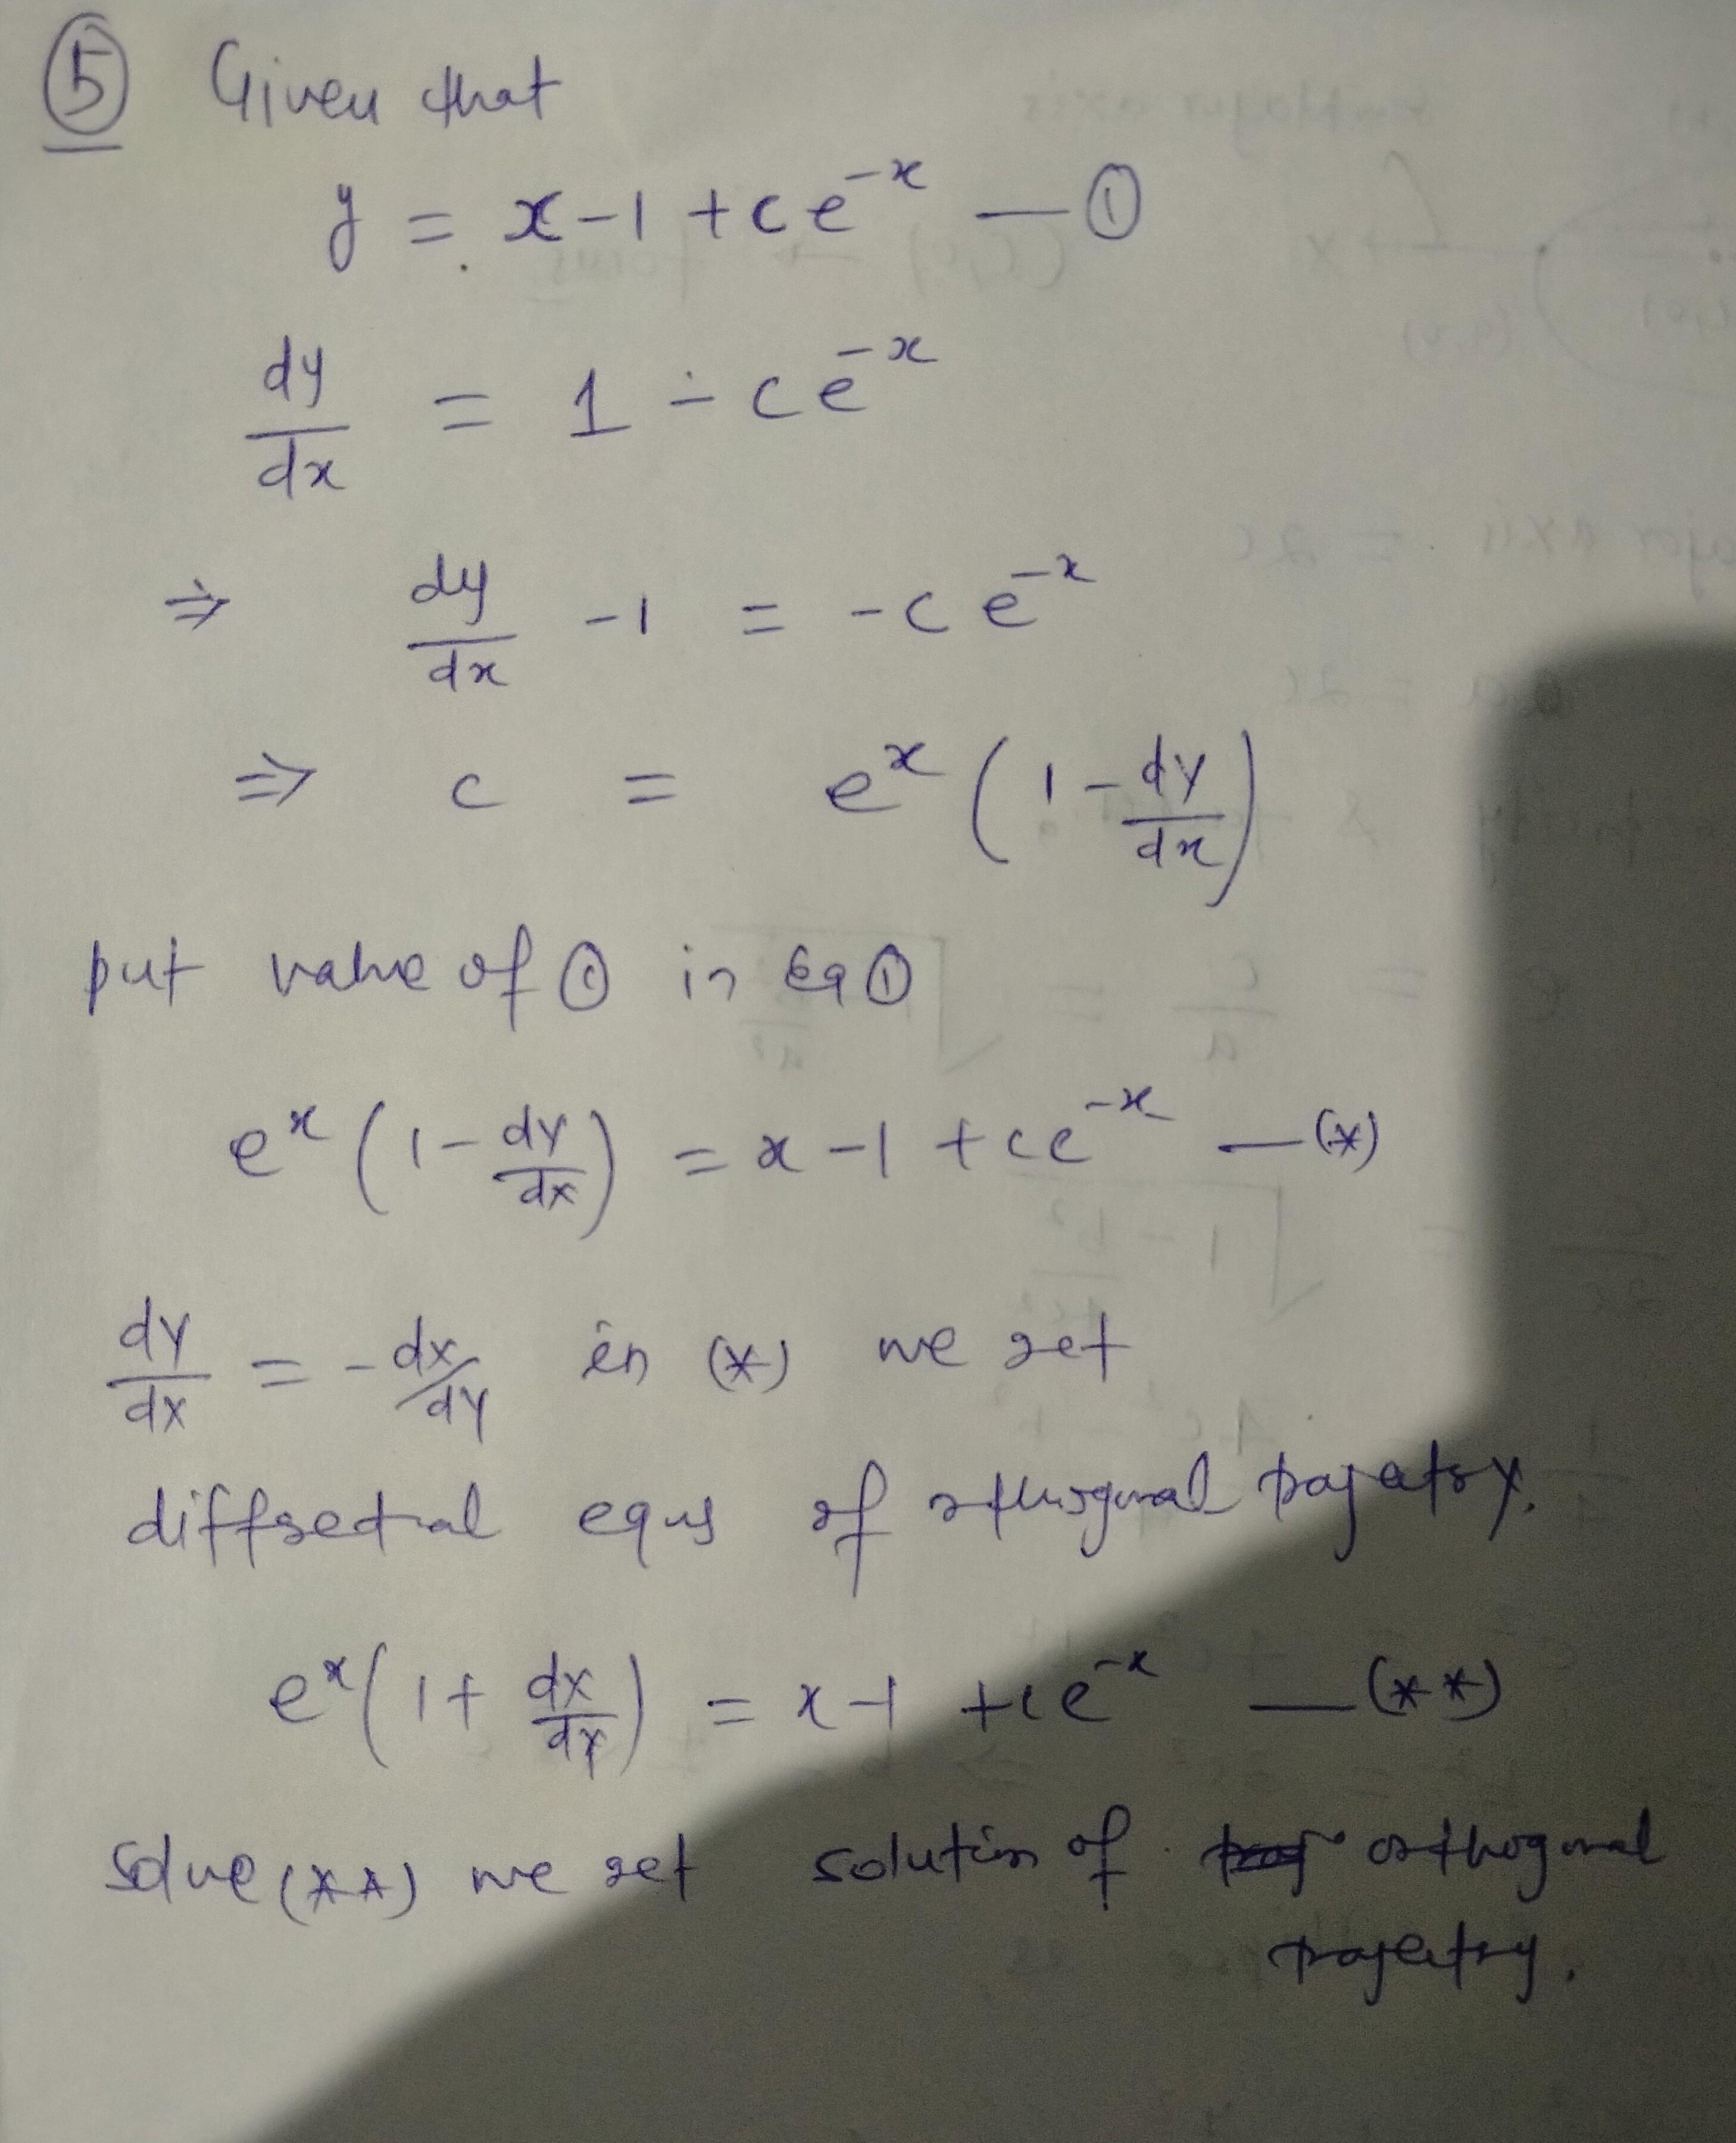 ⑤ Given that
y = x-1 +ce^{-x} — ①
dy/dx = 1 - ce^{-x}
⇒ dy/dx -1 = -ce^{-x}
⇒ c = e^x (1 - dy/dx)
put value of ① in Eq ①
e^x (1 - dy/dx) = x -1 +ce^{-x} — (*)
dy/dx = -dx/dy in (*) we get
of orthogonal trajectory.
e^x (1+ dx/dy) = x-1 +ce^{-x} — (**)
solve (**) we get solution of orthogonal
trajectry.